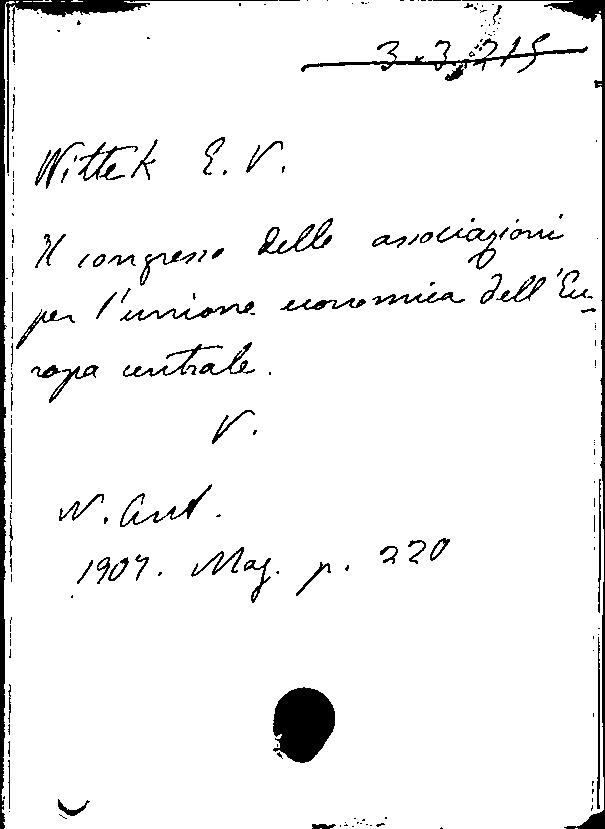 3.3.215
Wittek E. V.
Il congresso delle associazioni
per l'unione economica dell'Eu-
ropa centrale.
V.
N. Ant.
1907. Mag. p. 220